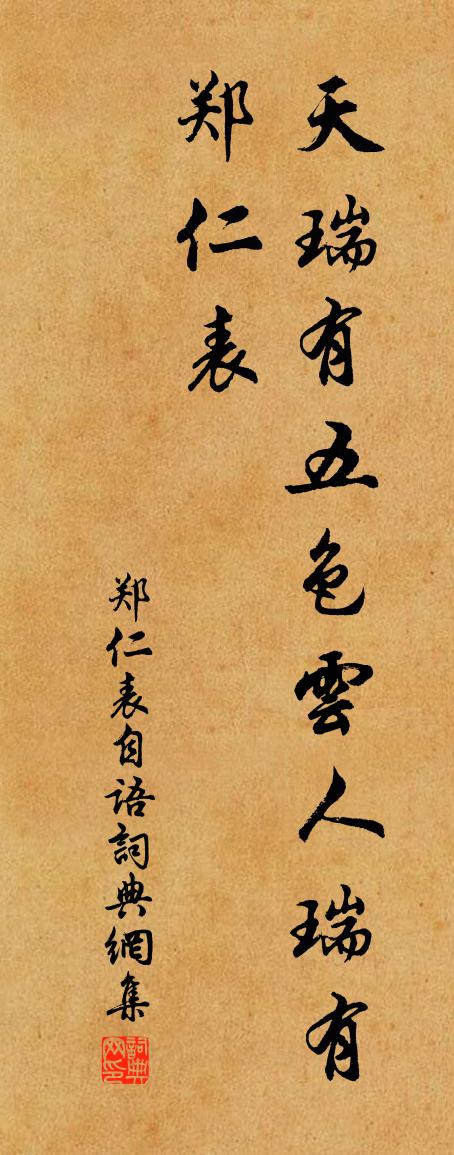 天瑞有五色雲人瑞有
郑仁表
郑仁表自语詞典網集
詞典网印